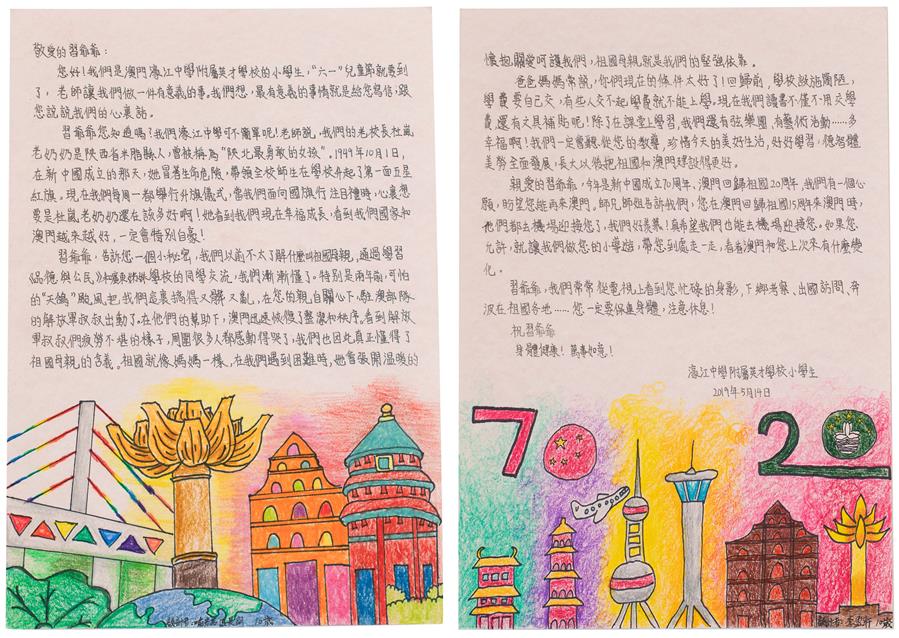 敬愛的習爺爺：
您好！我們是澳門濠江中學附屬英才學校的小學生，“六一”兒童節就要到
了，老師讓我們做一件有意義的事。我們想，最有意義的事情就是給您寫信，跟
您說說我們的心裏話。
習爺爺您知道嗎？我們濠江中學可不簡單呢！老師說，我們的老校長杜嵐
老奶奶是陝西省米脂縣人，曾被稱為“陝北最勇敢的女孩”。1949年10月1日，
在新中國成立的那天，她冒着生命危險，帶領全校師生在學校升起了第一面五星
紅旗。現在我們每周一都舉行升旗儀式，當我們面向國旗行注目禮時，心裏想
要是杜嵐老奶奶還在該多好啊！她看到我們現在幸福成長，看到我們國家和
澳門越來越好，一定會特別自豪！
習爺爺，告訴您一個小秘密，我們以前不太了解什麼叫祖國母親，通過學習
《品德與公民》學校的同學交流，我們漸漸懂了。特別是兩年前，可怕
的“天鴿”颱風把我們這裏搞得又髒又亂，在您的親自關心下，駐澳部隊
的解放軍叔叔出動了。在他們的幫助下，澳門迅速恢復了整潔和秩序。看到解放
軍叔叔們疲勞不堪的樣子，周圍很多人都感動得哭了，我們也因此真正懂得了
祖國母親的含義。祖國就像媽媽一樣，在我們遇到困難時，她會張開溫暖的
10歲
懷抱關愛呵護我們，祖國母親就是我們的堅強依靠。
爸爸媽媽常說，你們現在的條件太好了！回歸前，學校設施簡陋，
學費要自己交，有些人交不起學費就不能上學。現在我們讀書不僅不用交學
費還有文具補貼呢！除了在課堂上學習，我們還有弦樂團，有藝術活動……多
幸福啊！我們一定會聽從您的教導，珍惜今天的美好生活，好好學習，德智體
美勞全面發展，長大以後把祖國和澳門建設得更好。
親愛的習爺爺，今年是新中國成立70周年、澳門回歸祖國20周年，我們有一個心
願，盼望您能再來澳門。師兄師姐告訴我們，您在澳門回歸祖國15周年來澳門時，
他們都去機場迎接您了，我們好羨慕！真希望我們也能去機場迎接您。如果您
允許，就讓我們做您的小導遊，帶您到處走一走，看看澳門和您上次來有什麼變
化。
習爺爺，我們常常從電視上看到您忙碌的身影，下鄉考察、出國訪問、奔
波在祖國各地……您一定要保重身體，注意休息！
祝習爺爺
身體健康！萬事如意！
濠江中學附屬英才學校小學生
2019年5月14日
70
20
10歲